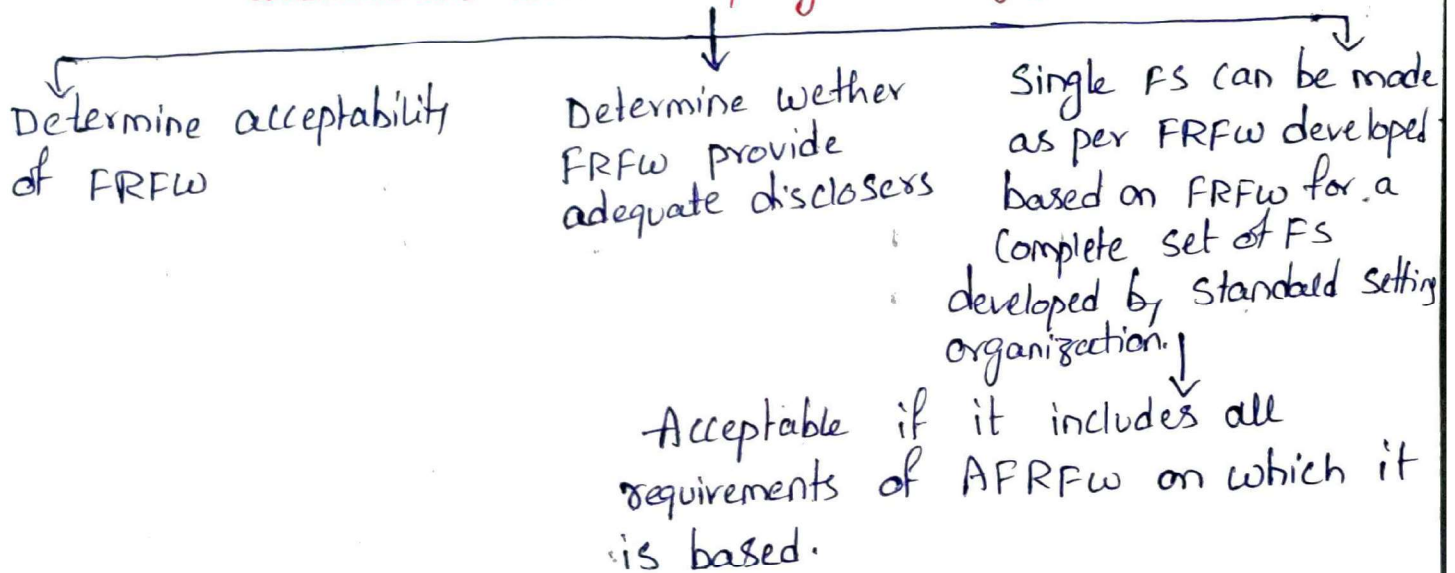 Determine acceptability
of FRFW
Determine wether
FRFW provide
adequate disclosers
Single FS can be made
as per FRFW developed
based on FRFW for a
Complete set of FS
developed by Standard Setting
organization.
Acceptable if it includes all
requirements of AFRFW on which it
is based.